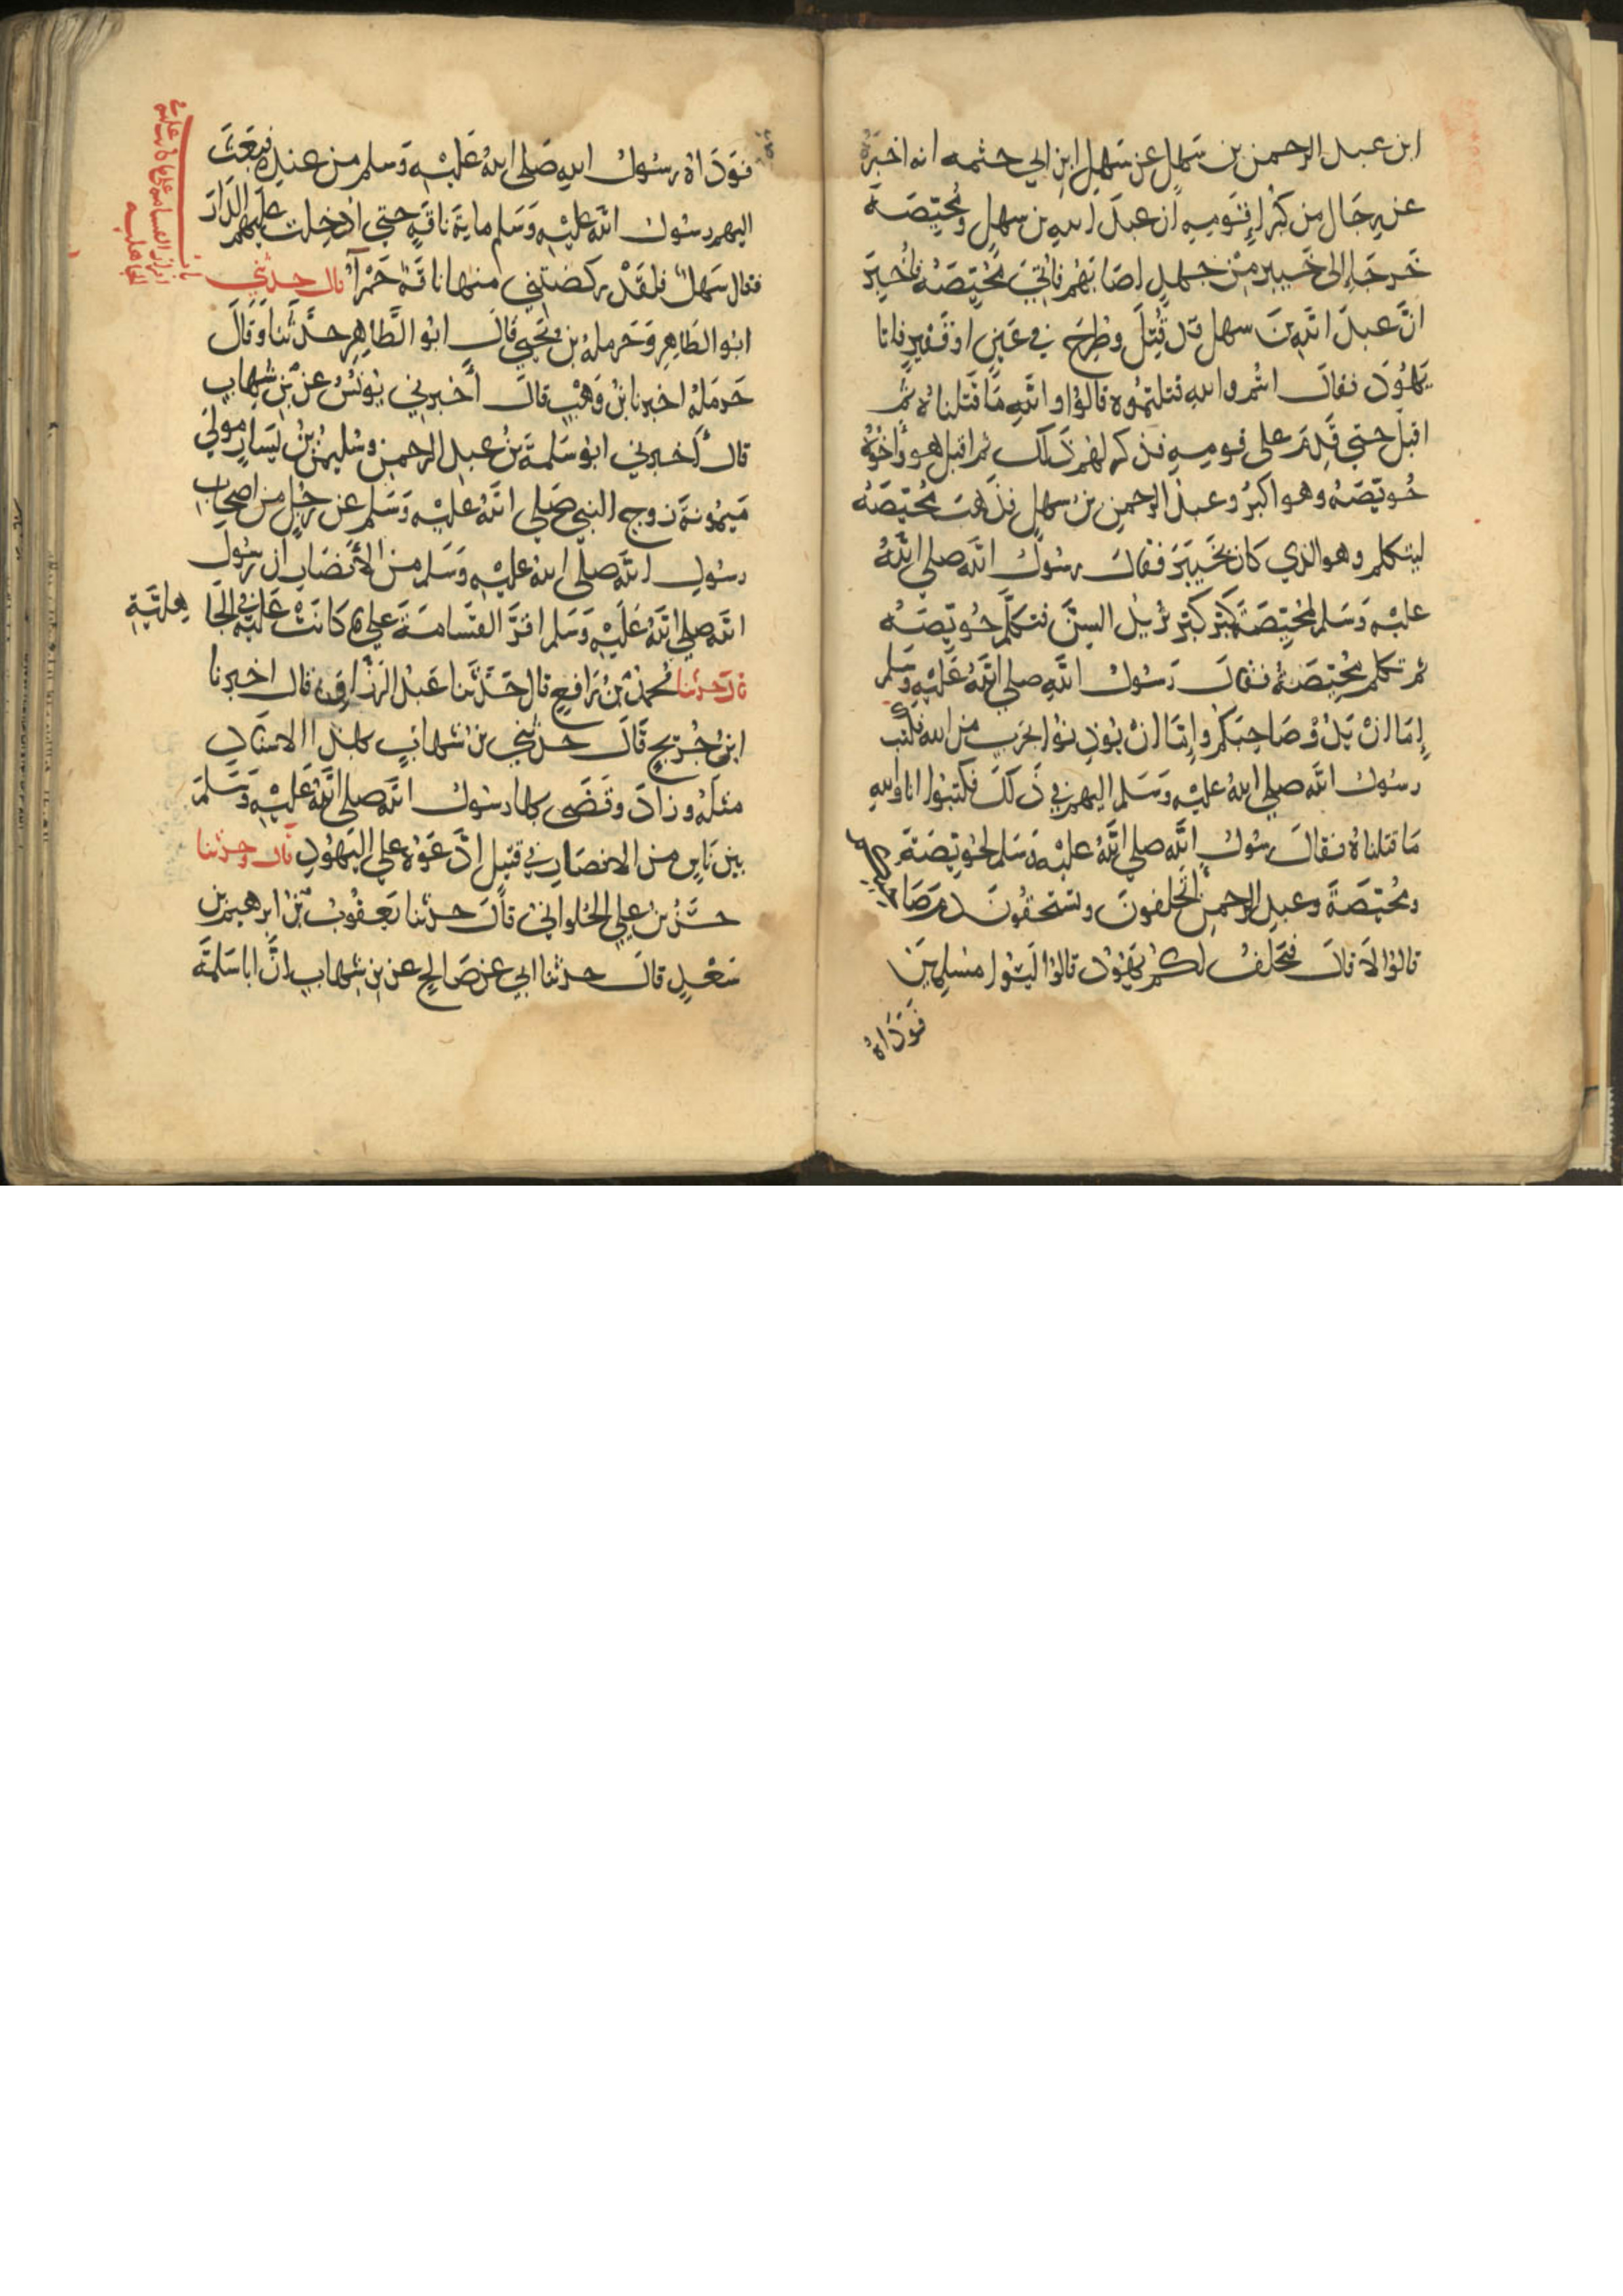 ابن عبد الرحمن بن سَهل عن سَهل ابن ابي حثمه انه اخبره
عن رجَال من كبَرا قَومِه ان عبدَ الله بن سهل ومُحيّصَةَ
خَرجَا إلى خَيبر من جهدٍ اصَابَهُم فاتي مُحَيّصَةُ فاخبر
انَّ عبدَ اللهِ بنَ سهل قد قُتِلَ وطُرِحَ في عَينٍ او فَقيرٍ فاتا
يَهُودَ فقال انتُم والله قتلتمُوه قالوُا واللهِ مَا قَتلنَاه ثم
اقبلَ حتي قَدِمَ على قومِهِ فذكر لهُم ذَلك ثم اقبل هو واخُوهُ
حُويّصَهُ وهو اكبرُ وعبدُ الرحمن بن سهل فذهَبَ مُحيّصَهُ
ليتكلم وهو الذي كان بخَيبَرَ فقال رسُولُ الله صلي اللهُ
عليْه وَسَلم لمُحيّصَة كَبّر كَبّر يُريدُ السِنَّ فتكلّم حُويّصَه
ثم تكلم مُحيّصَةُ فقال رَسُولُ اللهِ صلي اللهُ عَليْهِ وَسَلم
إمَا انْ يَدُوْ صَاحِبَكُم وإمَا انْ يُوذِنوُا بحَربٍ من الله فكتب
رسُولُ الله صلي اللهُ عليْه وَسَلم اليهم في ذَلكَ فكتبوُا انا والله
مَا قتلناهُ فقالَ رسُولُ الله صلي اللهُ عليْه وَسَلم لحُويّصَةَ
ومُحيّصَةَ وعبدِ الرحمنِ اتحلفونَ وتستحقونَ دم صَاحبكم
قالوُا لاَ قالَ فتحَلِفُ لكُم يَهُودُ قالوُا ليسُوا مسلمينَ
فَوَدَاهُ
فوَدَاهُ رسُولُ اللهِ صَلى اللهُ عَليْه وَسلم من عنده فبعَثَ
اليهم رسُولُ الله عليْه وَسَلم ماية ناقةٍ حتي ادْخِلت عَليهم الدَارَ
فقال سَهلٌ فلقَدْ ركضتني منها ناقةٌ حَمْرآ قال حدثني
ابوُ الطَاهِر وَحَرملةُ بن يحَيي قَالَ ابوُ الطَاهِر حدَّثنَا وقَالَ
حَرمَلةُ اخبرنا ابنُ وَهْبٍ قالَ أخبرني يُونسُ عن بن شِهاب
قالَ أخبرني ابوُ سَلمةَ بنُ عبدِ الرحمنِ وسُليمنُ بنُ يَسَارٍ مولي
مَيمُونة زوج النبي صَلي اللهُ عليْه وَسَلم عن رجُلٍ من اصحاب
رسُولِ الله صلَى اللهُ عليْه وَسَلم منَ الأنصَارِ ان رسُولَ
الله صلي اللهُ عَليْه وَسَلم اقرَّ القسامَةَ علي مَا كَانَتْ عَليْه في الجَا
هِليّةِ
قال حدثنا مُحمدُ بنُ رَافِعٍ قال حَدَّثنا عَبدُ الرزاق قال اخبرنا
ابنُ جُرَيجٍ قَالَ حدثني بن شهابٍ بهذا الاسنَاد
مثلهُ وزادَ وقَضَى بها رسُولُ الله صلي اللهُ عَليْه وَسَلمَ
بينَ نَاسٍ من الانصَار في قتيل إدَّعَوْه علي اليَهُودِ قال وحدثنا
حسَنُ بنُ عليٍ الحُلوانيُ قالَ حدثنا يَعقُوبُ بنُ ابرهيم بن
سَعْدٍ قالَ حدثنا ابي عن صَالحٍ عن بن شهاب انَّ ابا سَلمَةَ
باب
اقرار القسامه على ما كانت عليه في
الجاهليه